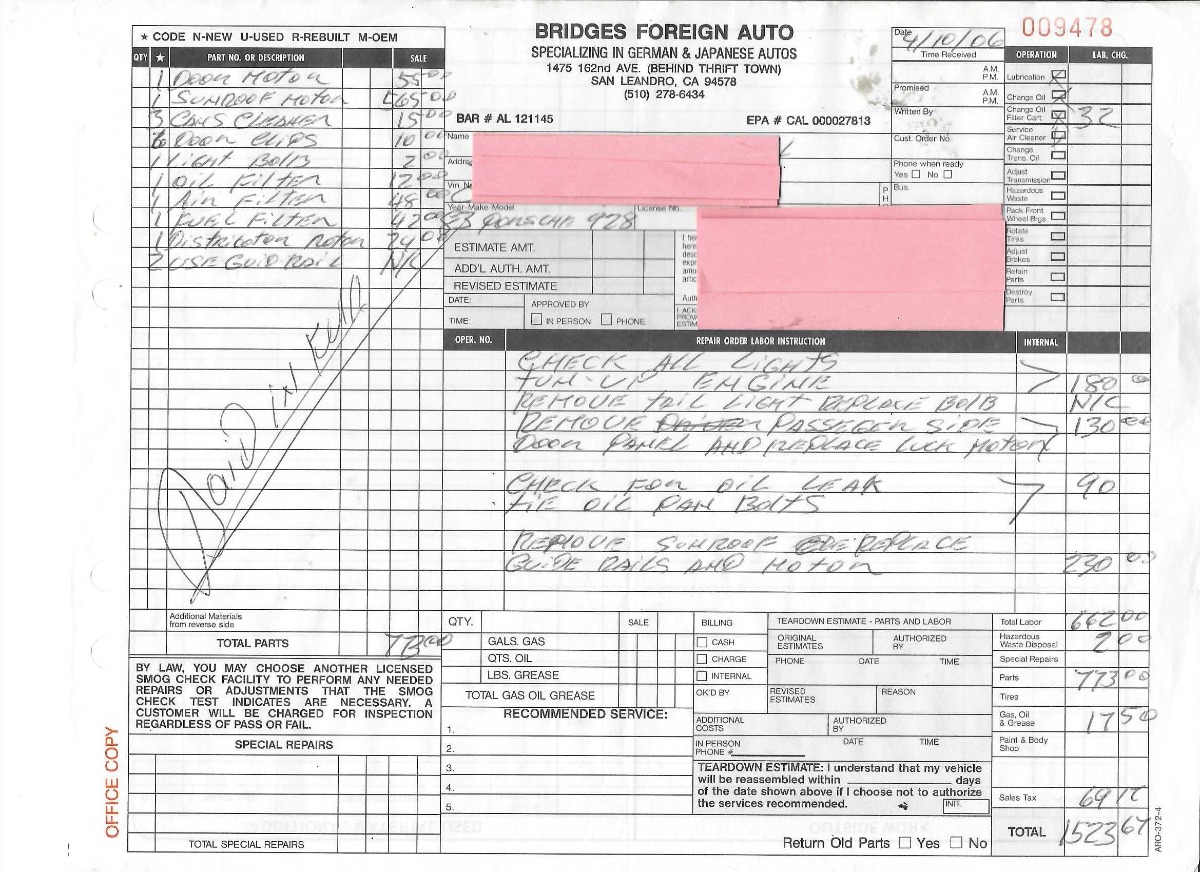 ★ CODE N-NEW U-USED R-REBUILT M-OEM
QTY ★ PART NO. OR DESCRIPTION SALE
1 DOOR MOTOR 55 00
1 SUNROOF MOTOR 565 00
3 CANS CLEANER 15 00
6 DOOR CLIPS 10 00
1 LIGHT BOLB 2 00
1 OIL FILTER 12 00
1 AIR FILTER 48 00
1 FUEL FILTER 42 00
1 DISTRIBUTOR ROTOR 24 00
2 USE GUID RAIL N/C
PAID IN FULL
Additional Materials
from reverse side
TOTAL PARTS 773 00
BY LAW, YOU MAY CHOOSE ANOTHER LICENSED
SMOG CHECK FACILITY TO PERFORM ANY NEEDED
REPAIRS OR ADJUSTMENTS THAT THE SMOG
CHECK TEST INDICATES ARE NECESSARY. A
CUSTOMER WILL BE CHARGED FOR INSPECTION
REGARDLESS OF PASS OR FAIL.
SPECIAL REPAIRS
TOTAL SPECIAL REPAIRS
OFFICE COPY
BRIDGES FOREIGN AUTO
SPECIALIZING IN GERMAN & JAPANESE AUTOS
1475 162nd AVE. (BEHIND THRIFT TOWN)
SAN LEANDRO, CA 94578
(510) 278-6434
BAR # AL 121145 EPA # CAL 000027813
Name
Addre
Vin. N
Year-Make-Model License No.
83 PORSCHA 928
ESTIMATE AMT.
ADD'L AUTH. AMT.
REVISED ESTIMATE
DATE: APPROVED BY
TIME: IN PERSON PHONE
009478
Date 4/10/06
Time Received
A.M.
P.M.
Promised
A.M.
P.M.
Written By
Cust. Order No.
Phone when ready
Yes No
Bus.
OPERATION LAB. CHG.
Lubrication
Change Oil
Change Oil
Filter Cart. 32
Service
Air Cleaner
Change
Trans. Oil
Adjust
Transmission
Hazardous
Waste
Pack Front
Wheel Brgs.
Rotate
Tires
Adjust
Brakes
Retain
Parts
Destroy
Parts
OPER. NO. REPAIR ORDER LABOR INSTRUCTION INTERNAL
CHECK ALL LIGHTS
TUN-UP ENGINE 180 00
REMOVE TAIL LIGHT REPLACE BOLB N/C
REMOVE DRIVER PASSEGER SIDE 130 00
DOOR PANEL AND REPLACE LOCK MOTOR
CHECK FOR OIL LEAK 90
TIE OIL PAN BOLTS
REMOVE SUNROOF REPLACE
GUIDE RAILS AND MOTOR 230 00
QTY. SALE
GALS. GAS
QTS. OIL
LBS. GREASE
TOTAL GAS OIL GREASE
RECOMMENDED SERVICE:
1.
2.
3.
4.
5.
BILLING
CASH
CHARGE
INTERNAL
OK'D BY
TEARDOWN ESTIMATE - PARTS AND LABOR
ORIGINAL
ESTIMATES
AUTHORIZED
BY
PHONE DATE TIME
REVISED
ESTIMATES
REASON
ADDITIONAL
COSTS
AUTHORIZED
BY
IN PERSON
PHONE # DATE TIME
TEARDOWN ESTIMATE: I understand that my vehicle
will be reassembled within days
of the date shown above if I choose not to authorize
the services recommended.
INIT.
Return Old Parts Yes No
Total Labor 662 00
Hazardous
Waste Disposal 2 00
Special Repairs
Parts 773 00
Tires
Gas, Oil
& Grease 17 50
Paint & Body
Shop
Sales Tax 69 17
TOTAL 1523 67
ARO-372-4